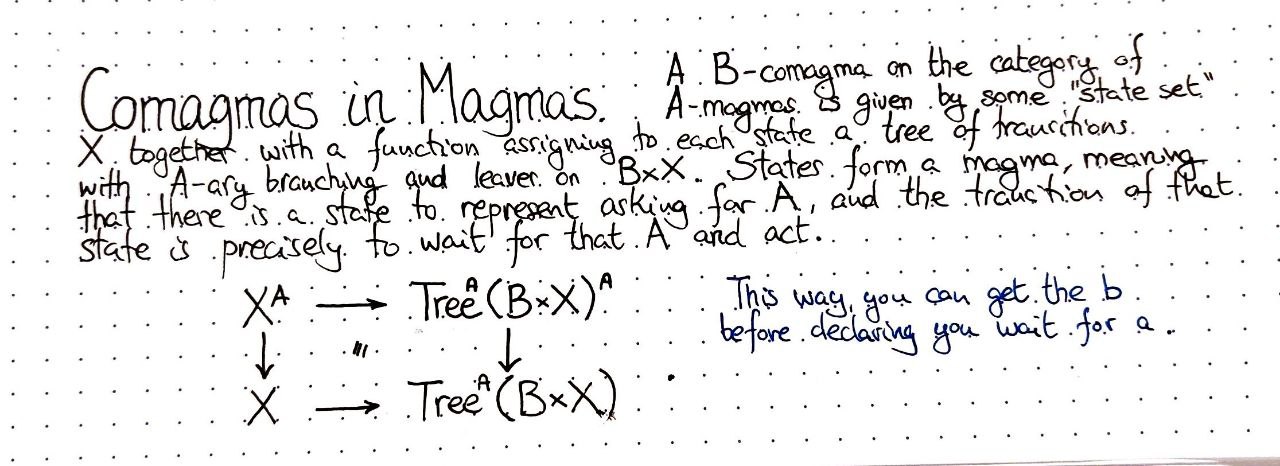 Comagmas in Magmas. A B-comagma on the category of
A-magmas is given by some "state set"
X together with a function assigning to each state a tree of transitions.
with A-ary branching and leaves on B×X. States form a magma, meaning
that there is a state to represent asking for A, and the transition of that
state is precisely to wait for that A and act.
Xᴬ → Treeᴬ(B×X)ᴬ
This way, you can get the b
before declaring you wait for a.
↓ ''' ↓
X → Treeᴬ(B×X)